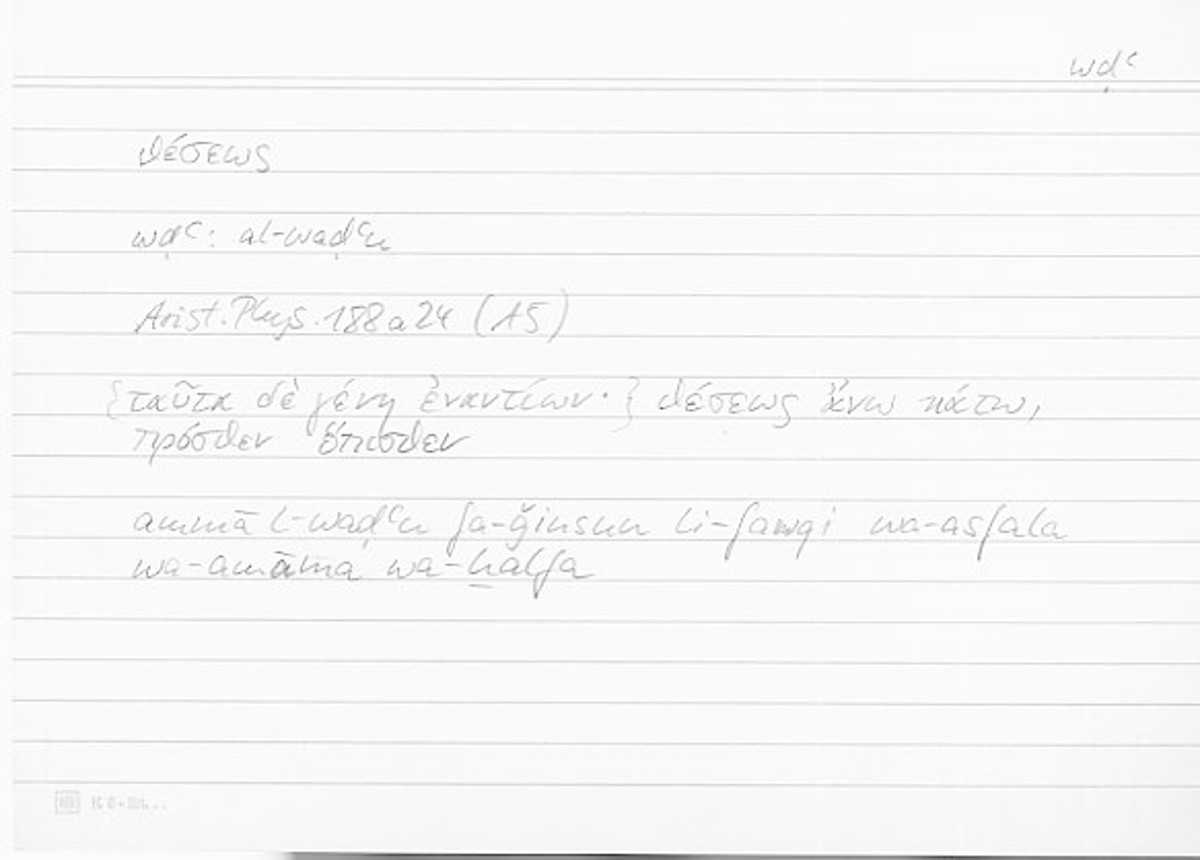 wḍʿ
θέσεως
wḍʿ: al-waḍʿu
Arist. Phys. 188a24 (A5)
{ταῦτα δὲ γένη ἐναντίων·} θέσεως ἄνω κάτω,
πρόσθεν ὄπισθεν
ammā l-waḍʿu fa-ǧinsun li-fawqi wa-asfala
wa-amāma wa-ḫalfa